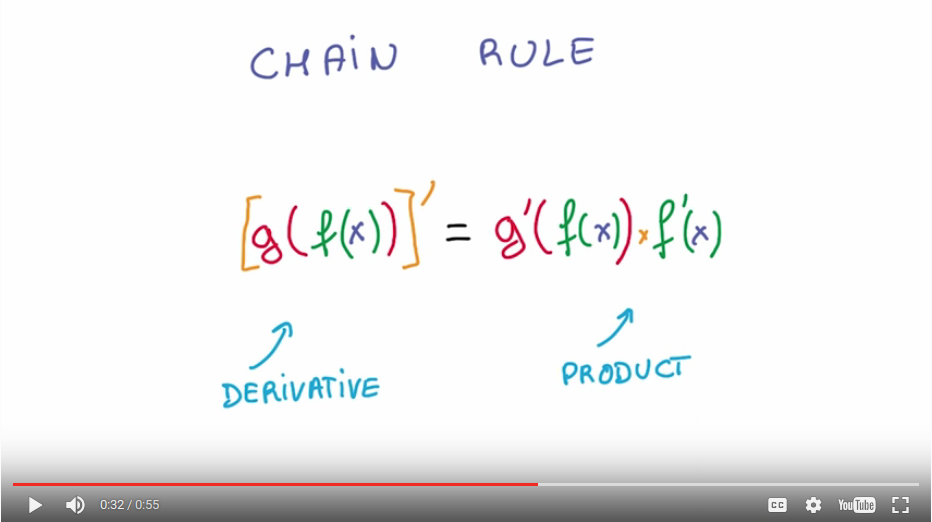 CHAIN RULE
[g(f(x))]' = g'(f(x)) × f'(x)
DERIVATIVE
PRODUCT
0:32 / 0:55
CC
YouTube